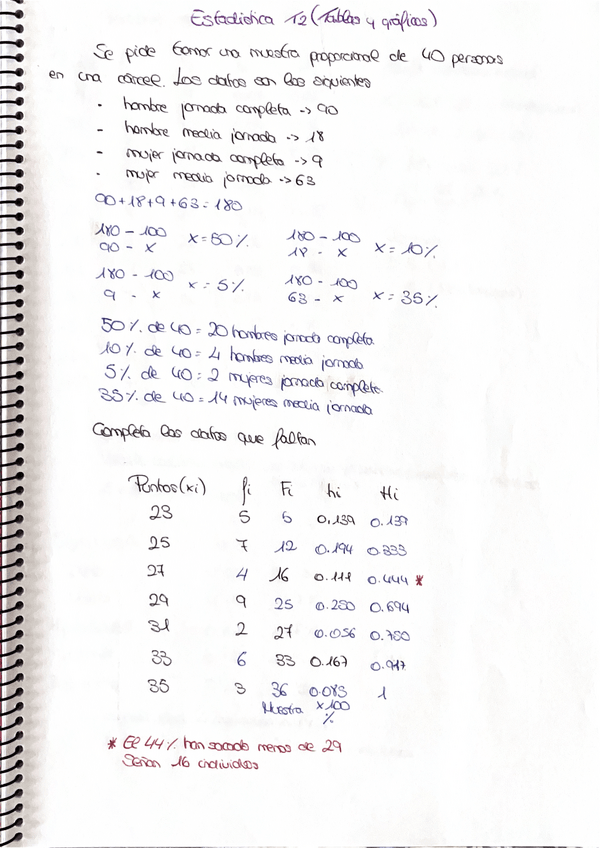 Estadística T2 (Tablas y gráficos)
Se pide tomar una muestra proporcional de 40 personas
en una cárcel. Los datos son los siguientes
- hombre jornada completa -> 90
- hombre media jornada -> 18
- mujer jornada completa -> 9
- mujer media jornada -> 63
90+18+9+63=180
180 - 100 x = 50% 180 - 100 x = 10%
90 - x 18 - x
180 - 100 x = 5% 180 - 100 x = 35%
9 - x 63 - x
50% de 40 = 20 hombres jornada completa
10% de 40 = 4 hombres media jornada
5% de 40 = 2 mujeres jornada completa
35% de 40 = 14 mujeres media jornada
Completa los datos que faltan
Puntos (xi) fi Fi hi Hi
23 5 5 0.139 0.139
25 7 12 0.194 0.333
27 4 16 0.111 0.444 *
29 9 25 0.250 0.694
31 2 27 0.056 0.750
33 6 33 0.167 0.917
35 3 36 0.083 1
Muestra x100
%
* El 44% han sacado menos de 29
Serían 16 individuos